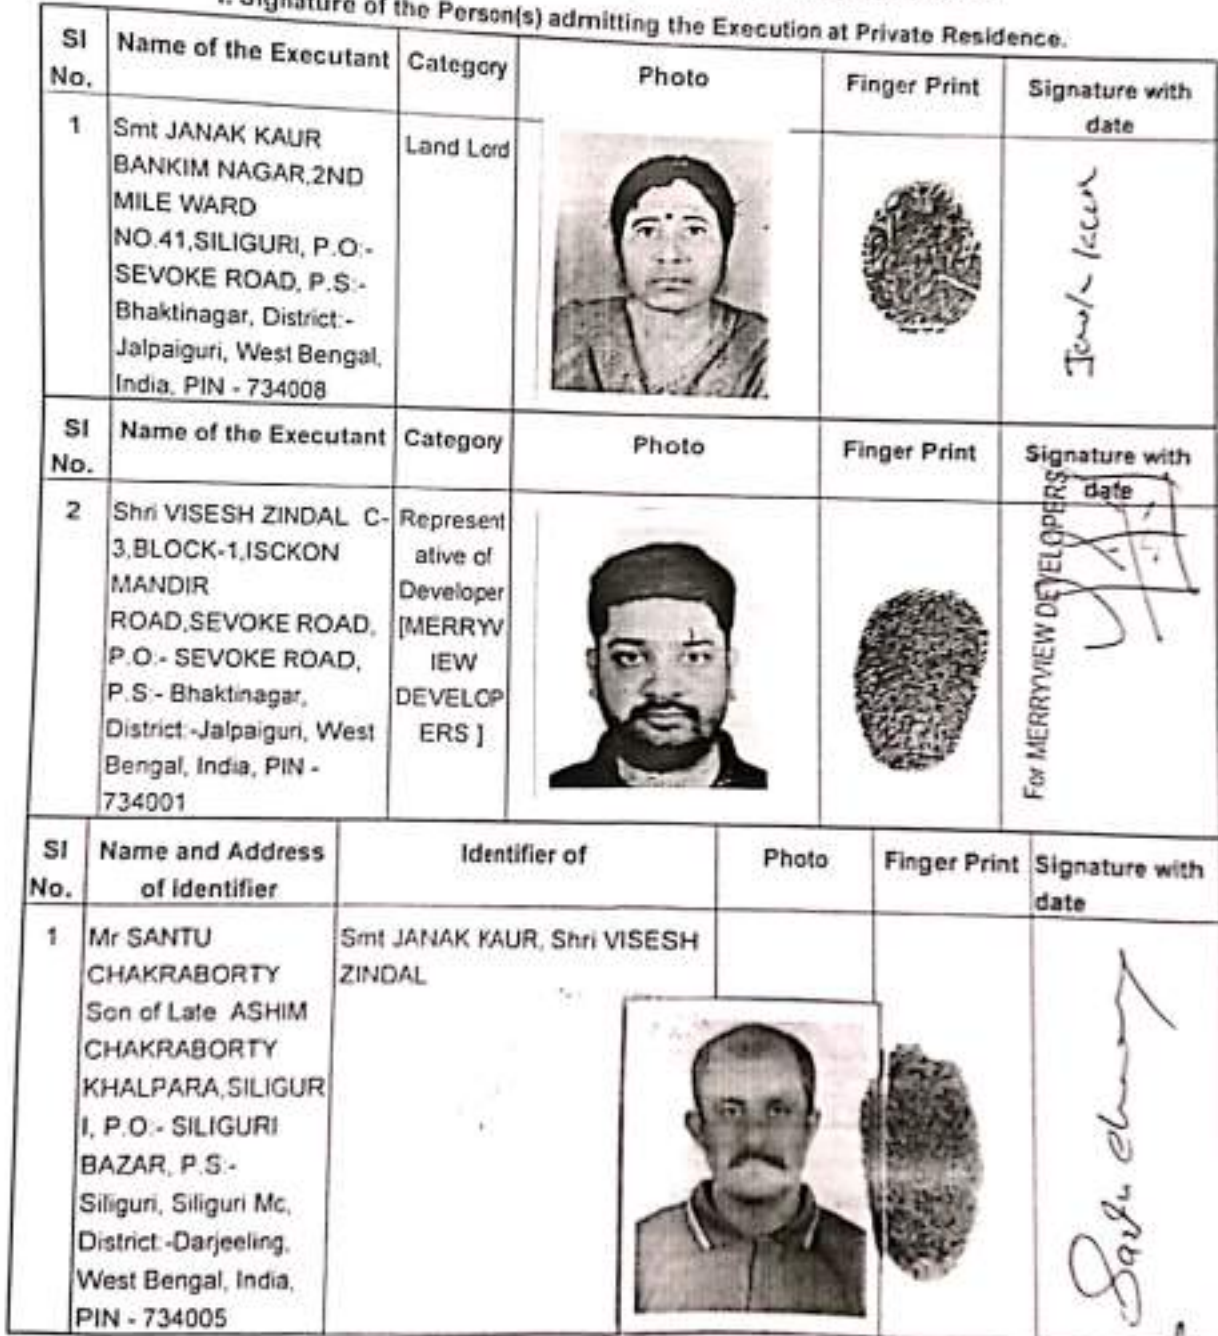 Signature of the Person(s) admitting the Execution at Private Residence.
SI No.
Name of the Executant
Category
Photo
Finger Print
Signature with date
1
Smt JANAK KAUR
BANKIM NAGAR,2ND
MILE WARD
NO.41,SILIGURI, P.O:-
SEVOKE ROAD, P.S:-
Bhaktinagar, District:-
Jalpaiguri, West Bengal,
India, PIN - 734008
Land Lord
SI No.
Name of the Executant
Category
Photo
Finger Print
Signature with date
2
Shri VISESH ZINDAL C-
3,BLOCK-1,ISCKON
MANDIR
ROAD,SEVOKE ROAD,
P.O:- SEVOKE ROAD,
P.S:- Bhaktinagar,
District:-Jalpaiguri, West
Bengal, India, PIN -
734001
Represent
ative of
Developer
[MERRYV
IEW
DEVELOP
ERS ]
For MERRYVIEW DEVELOPERS
SI No.
Name and Address
of identifier
Identifier of
Photo
Finger Print
Signature with
date
1
Mr SANTU
CHAKRABORTY
Son of Late ASHIM
CHAKRABORTY
KHALPARA,SILIGUR
I, P.O:- SILIGURI
BAZAR, P.S:-
Siliguri, Siliguri Mc,
District:-Darjeeling,
West Bengal, India,
PIN - 734005
Smt JANAK KAUR, Shri VISESH
ZINDAL